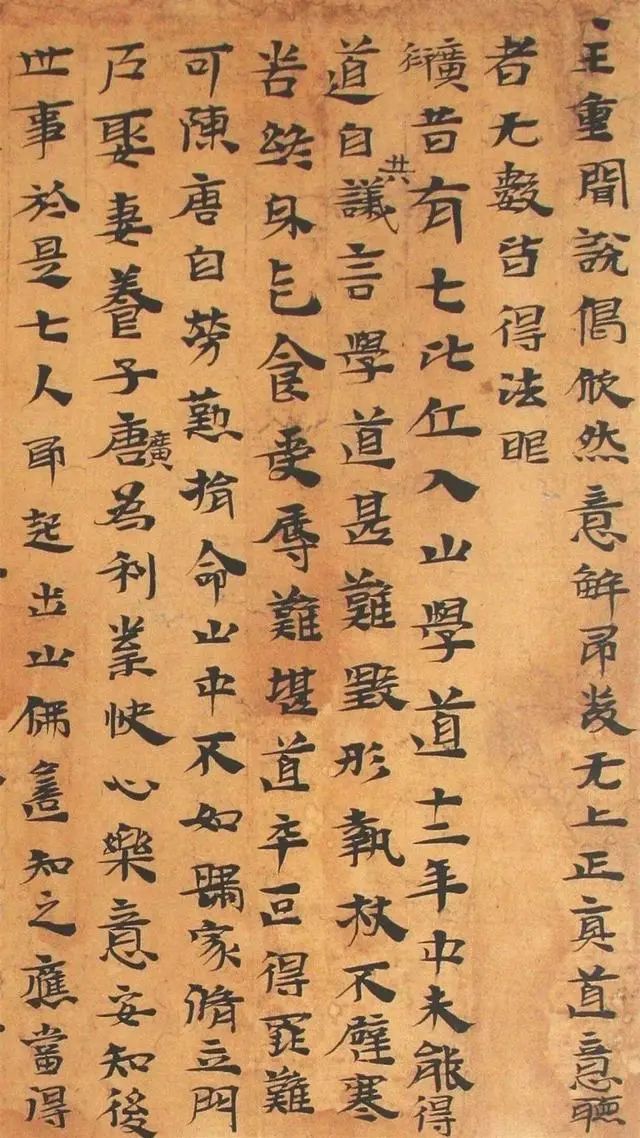 主重聞說偈欣然意解即發无上正真道意聽
者无數皆得法眼
衍廣昔有七比丘入山學道十二年中未能得
道自共議言學道甚難毀形執杖不避寒
苦終身乞食受辱難堪道卒叵得罪難
可陳唐自勞懃捐命山中不如歸家脩立門
戶娶妻養子唐廣為利業快心樂意安知後
世事於是七人即起出山佛遙知之應當得